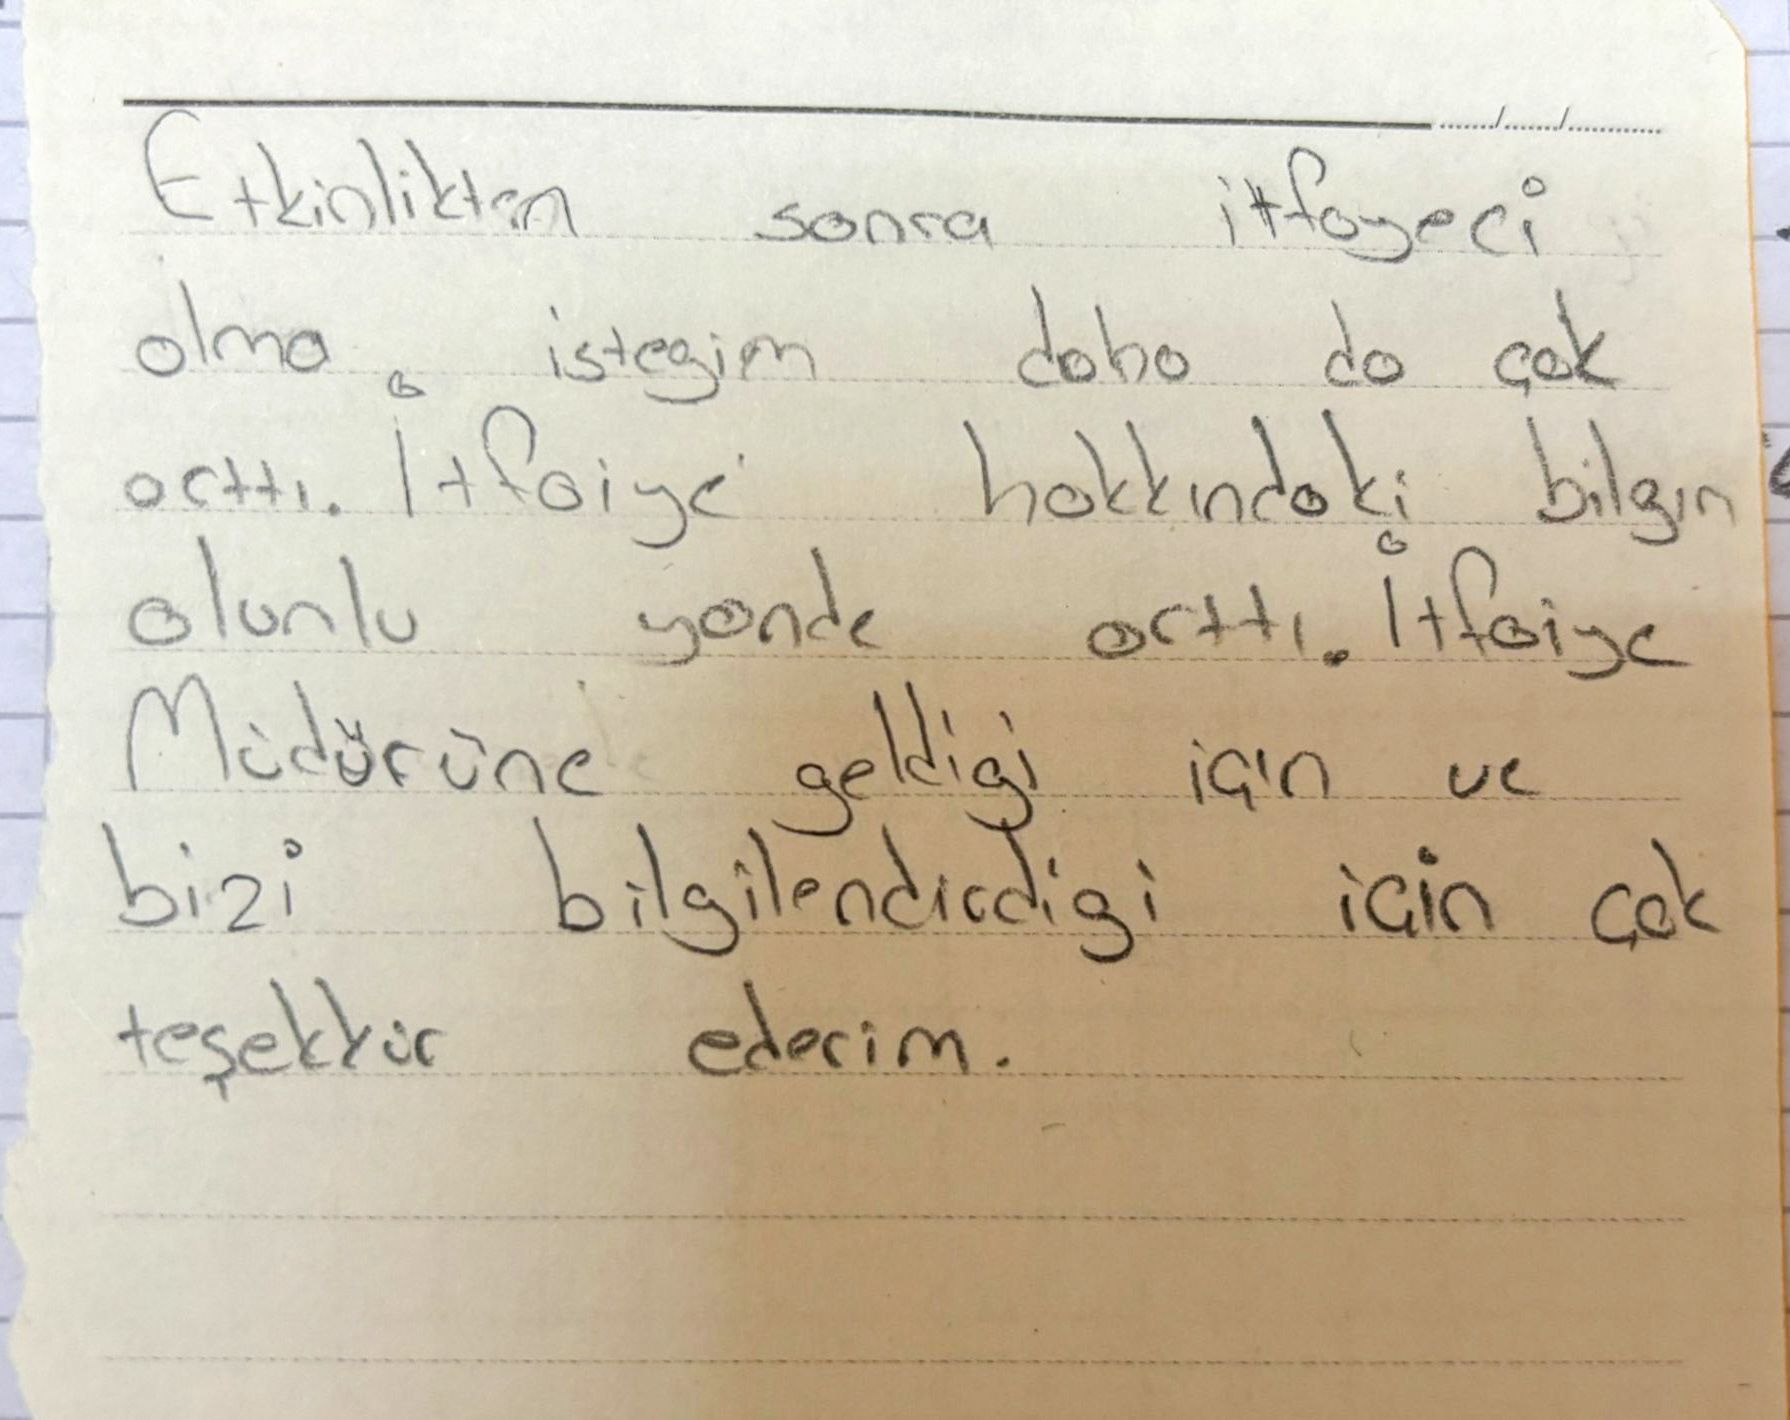 Etkinlikten sonra itfayeci
olma istegim daha da çok
arttı. İtfaiye hakkındaki bilgin
olunlu yönde arttı. İtfaiye
Müdürüne geldigi için ve
bizi bilgilendirdigi için çok
teşekkür ederim.